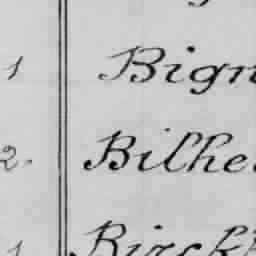 1 Bign
2. Bilhe
1 Birckh